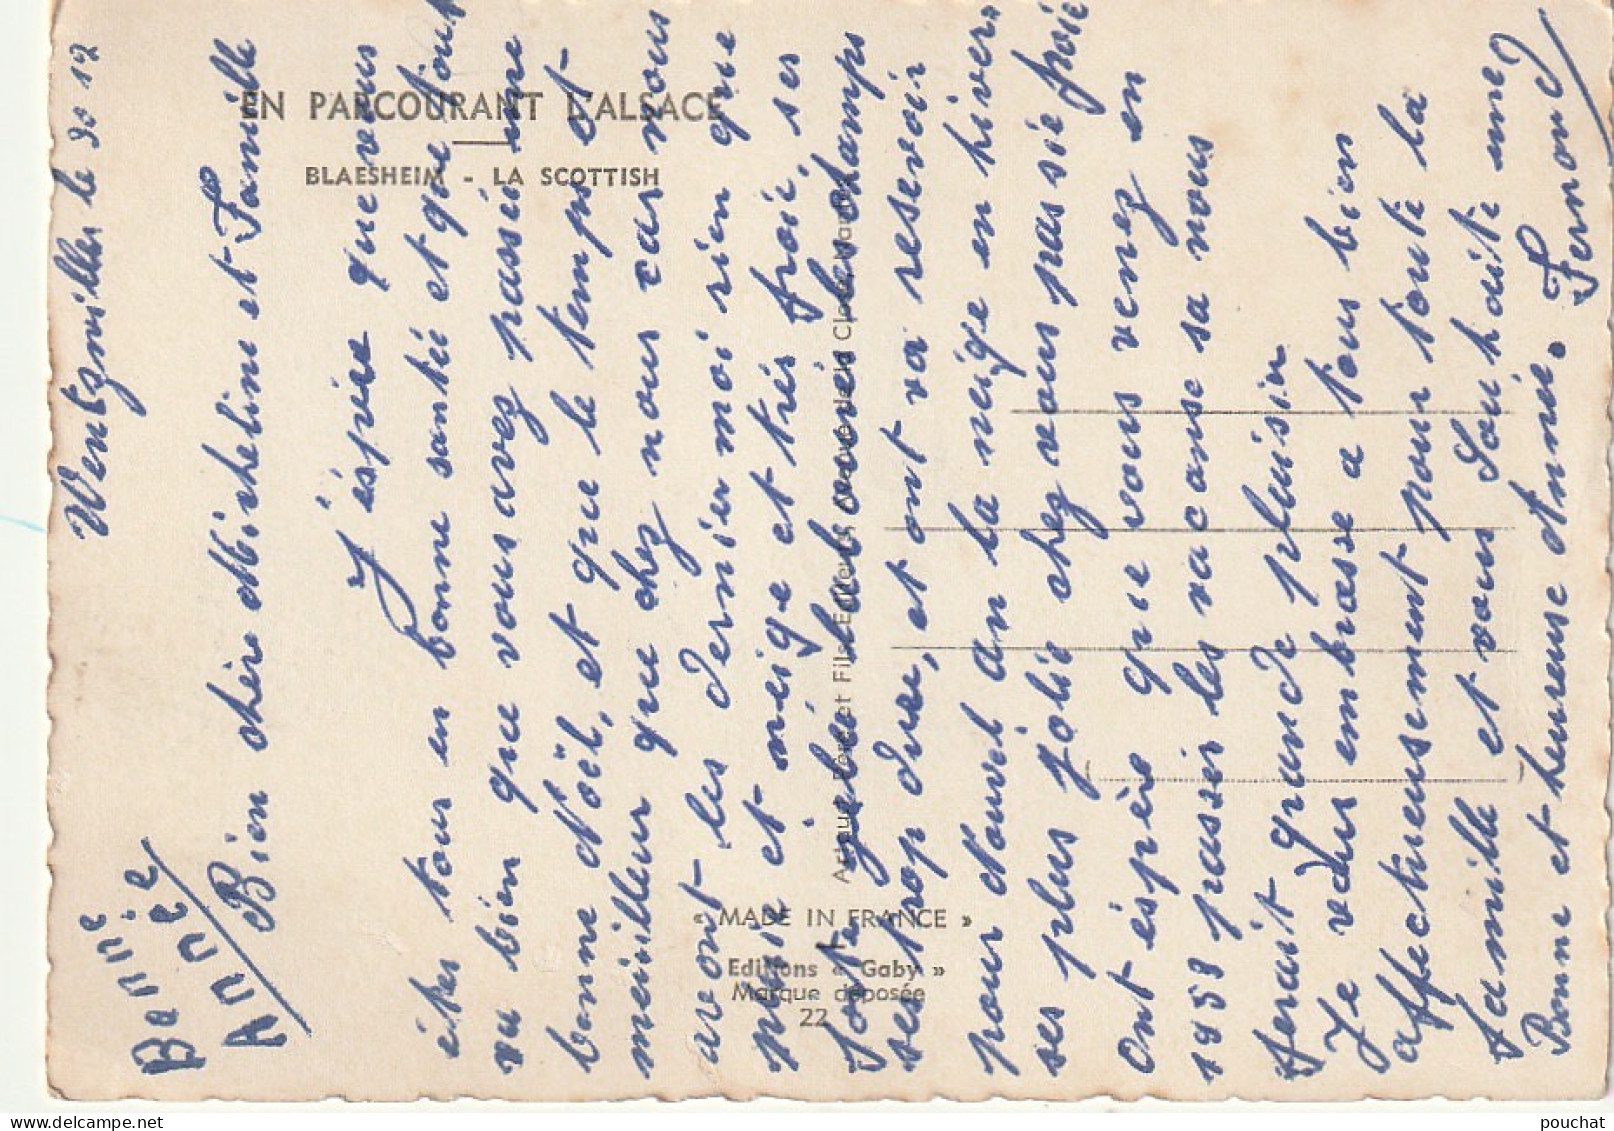 EN PARCOURANT L'ALSACE
BLAESHEIM - LA SCOTTISH
« MADE IN FRANCE »
Editions « Gaby »
Marque déposée
22
Bonne
Anneé
Wentzwiller le 30 12
Bien chère Micheline et Famille
J'éspère que vous
êtes tous en bonne santée et que tout
va bien que vous avez passée une
bonne Noël, et que le temps et
meuilleur que chez nous car nous
avont les dernier moi rien que
pluie et neige et très froie, ses
forte gelée labourer les champs
ses trop dure, et ont va reservoir
pour Nouvel an la neige en hiver
ses plus jolie chez vous pas sie froie
Ont éspès que vous venez en
1958 passer les vacanse sa nous
ferait grande plaisier
Je vous embrasse a tous bien
affectueusement pour toute la
famille et vous Souhaite une
Bonne et heureuse Année. Fernand